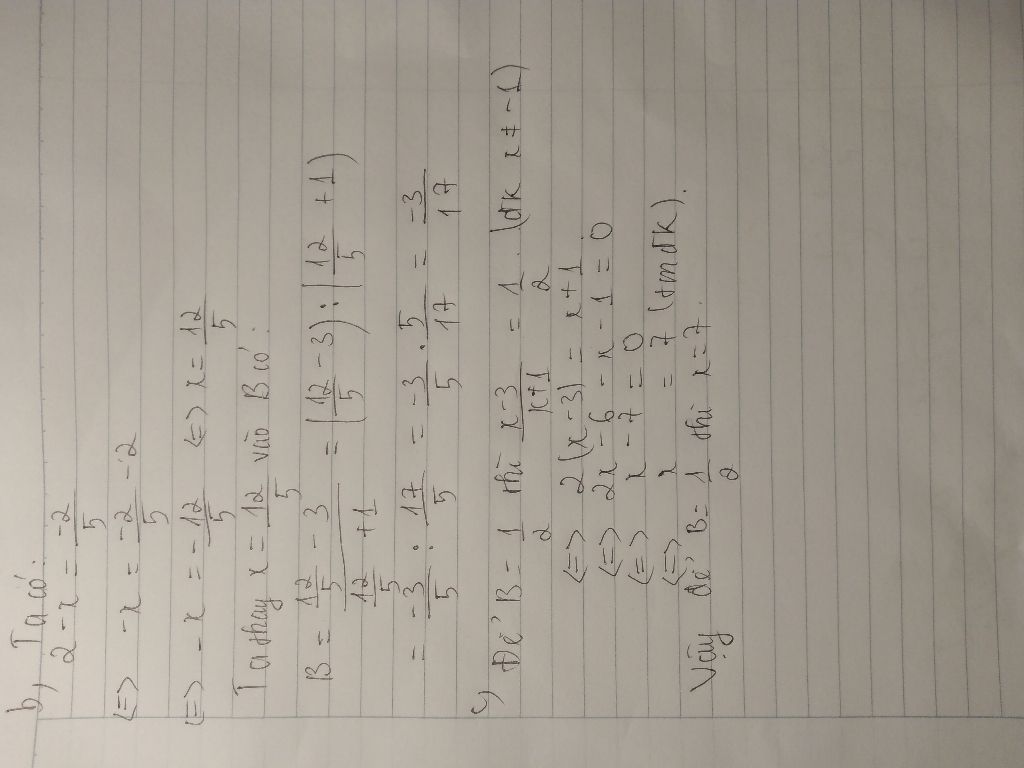 b, Ta có:
2 - x = -2/5
<=> -x = -2/5 - 2
<=> -x = -12/5 <=> x = 12/5
Ta thay x = 12/5 vào B có:
B = (12/5 - 3)/(12/5 + 1) = (12/5 - 3) : (12/5 + 1)
= -3/5 : 17/5 = -3/5 . 5/17 = -3/17
c, Để B = 1/2 thì (x-3)/(x+1) = 1/2 . (đk x ≠ -1)
<=> 2(x-3) = x+1
<=> 2x - 6 - x - 1 = 0
<=> x - 7 = 0
<=> x = 7 (tmđk).
Vậy để B = 1/2 thì x = 7.